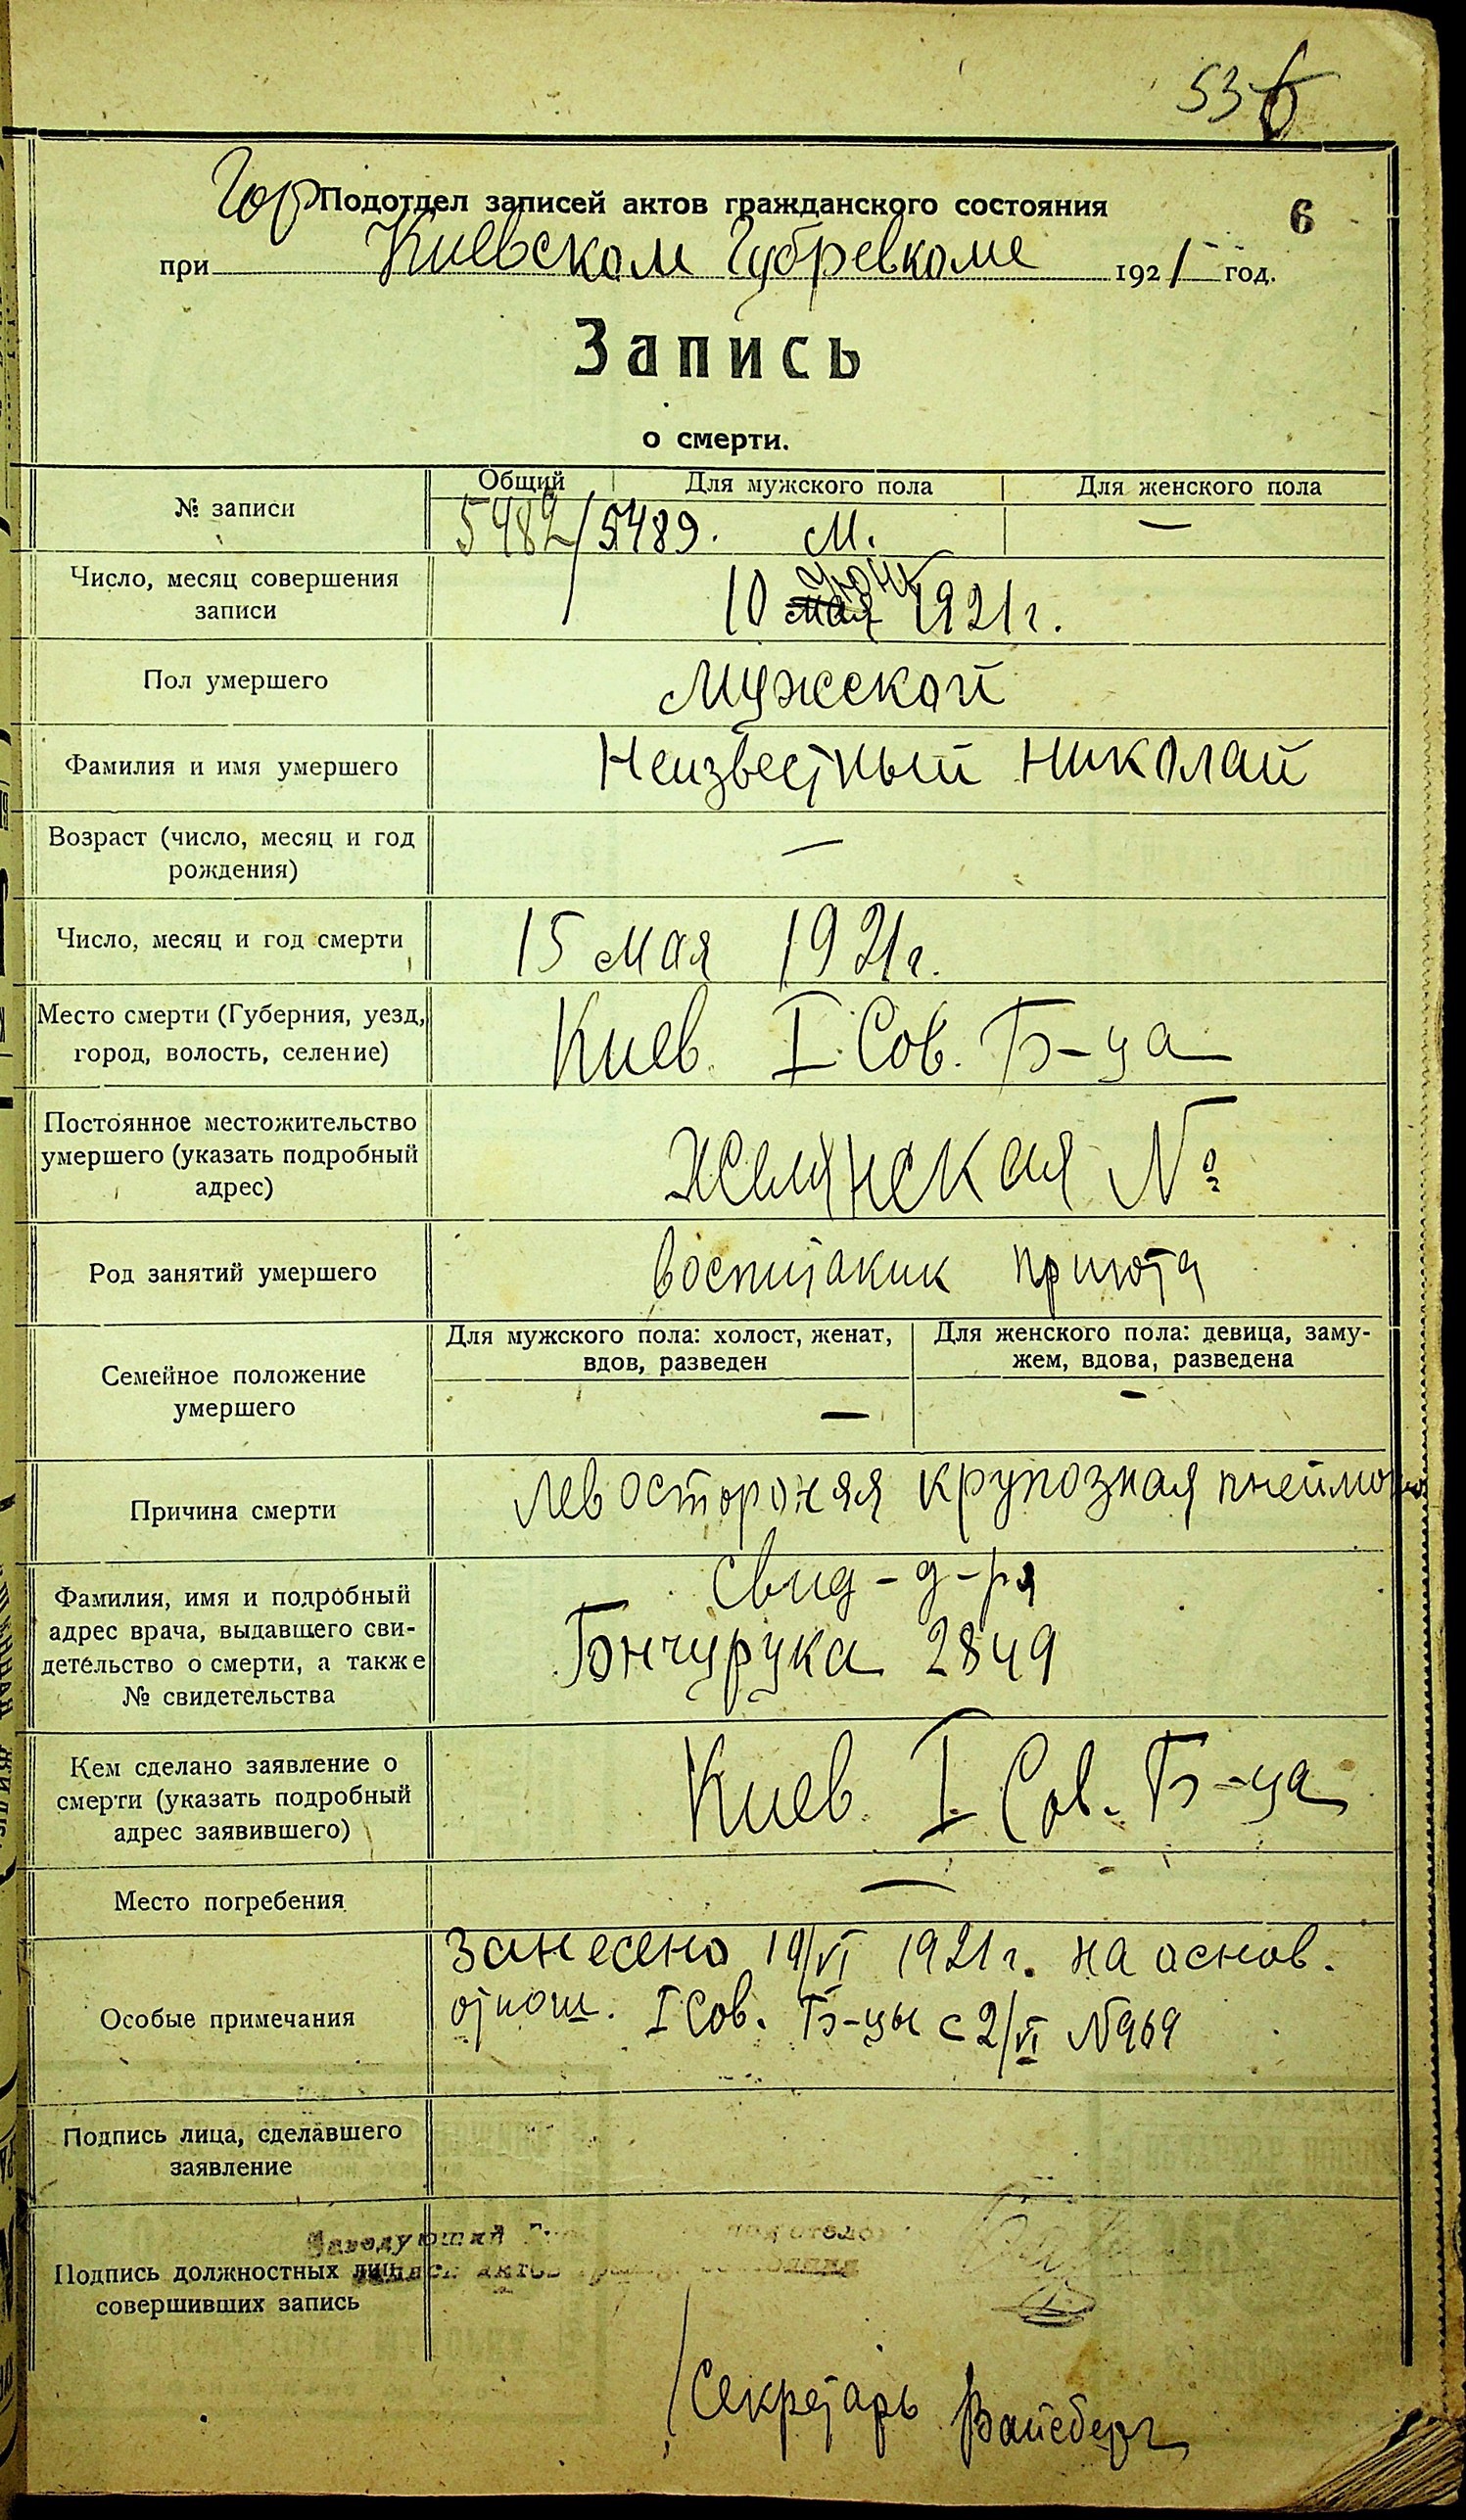 536
Гор Подотдел записей актов гражданского состояния
6
при Киевском Губревкоме 1921 год.
Запись
о смерти.
№ записи
Общий Для мужского пола Для женского пола
5482/5489. М. —
Число, месяц совершения
записи
июня
10 мая 1921 г.
Пол умершего
Мужской
Фамилия и имя умершего
Неизвестный Николай
Возраст (число, месяц и год
рождения)
—
Число, месяц и год смерти
15 мая 1921 г.
Место смерти (Губерния, уезд,
город, волость, селение)
Киев. I Сов. Б-ца
Постоянное местожительство
умершего (указать подробный
адрес)
Жилянская №
Род занятий умершего
воспитаник приюта
Семейное положение
умершего
Для мужского пола: холост, женат,
вдов, разведен
—
Для женского пола: девица, заму-
жем, вдова, разведена
—
Причина смерти
левостороняя крупозная пнеймон
Фамилия, имя и подробный
адрес врача, выдавшего сви-
детельство о смерти, а также
№ свидетельства
свид-д-ра
2849
Кем сделано заявление о
смерти (указать подробный
адрес заявившего)
Киев. I Сов. Б-ца
Место погребения
—
Особые примечания
Занесено 10/VI 1921 г. на основ.
отнош. I Сов. Б-цы с 2/VI №969
Подпись лица, сделавшего
заявление
Подпись должностных лиц,
совершивших запись
Заведующий подотдело
записи актов
Секретарь Вайсберг